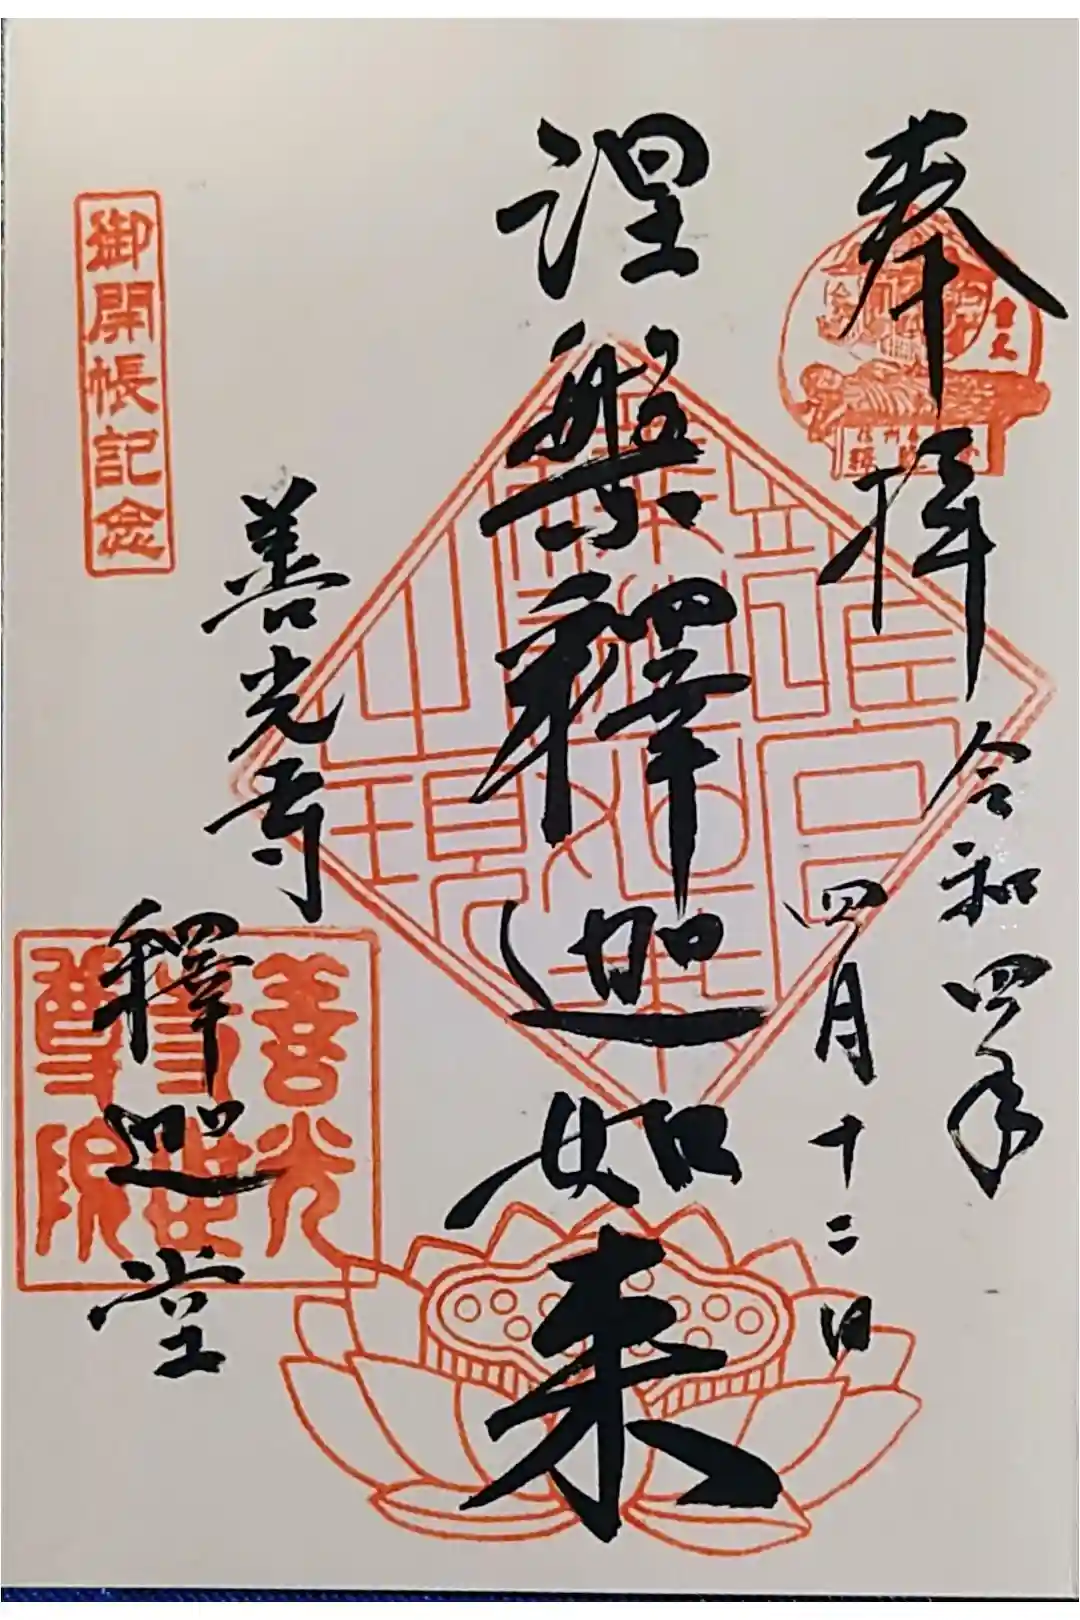 奉拝
令和四年
四月十二日
涅槃釋迦如来
善光寺
釋迦堂
御開帳記念
善光
世尊院